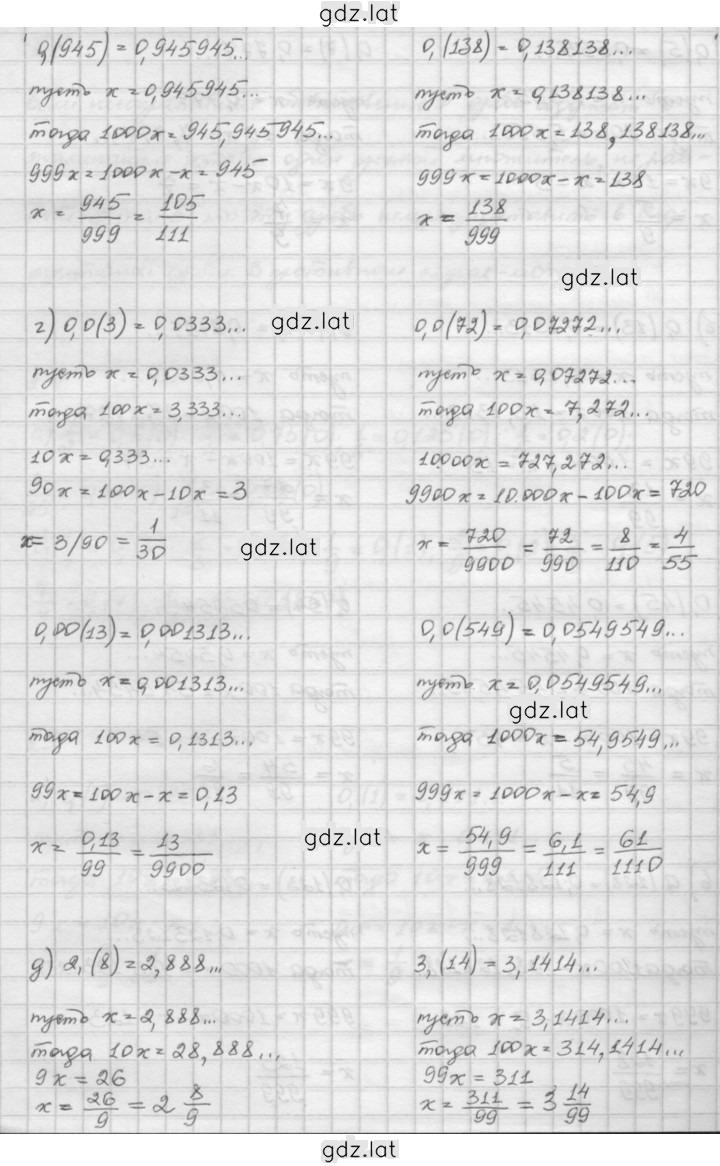 gdz.lat
0,(945) = 0,945945...
пусть x = 0,945945...
тогда 1000x = 945,945945...
999x = 1000x - x = 945
x = 945/999 = 105/111
0,(138) = 0,138138...
пусть x = 0,138138...
тогда 1000x = 138,138138...
999x = 1000x - x = 138
x = 138/999
gdz.lat
г) 0,0(3) = 0,0333...
gdz.lat
пусть x = 0,0333...
тогда 100x = 3,333...
10x = 0,333...
90x = 100x - 10x = 3
x = 3/90 = 1/30
gdz.lat
0,0(72) = 0,07272...
пусть x = 0,07272...
тогда 100x = 7,272...
10.000x = 727,272...
9900x = 10.000x - 100x = 720
x = 720/9900 = 72/990 = 8/110 = 4/55
0,00(13) = 0,001313...
пусть x = 0,001313...
тогда 100x = 0,1313...
99x = 100x - x = 0,13
x = 0,13/99 = 13/9900
gdz.lat
0,0(549) = 0,0549549...
пусть x = 0,0549549...
gdz.lat
тогда 1000x = 54,9549...
999x = 1000x - x = 54,9
x = 54,9/999 = 6,1/111 = 61/1110
д) 2,(8) = 2,888...
пусть x = 2,888...
тогда 10x = 28,888...
9x = 26
x = 26/9 = 2 8/9
3,(14) = 3,1414...
пусть x = 3,1414...
тогда 100x = 314,1414...
99x = 311
x = 311/99 = 3 14/99
gdz.lat